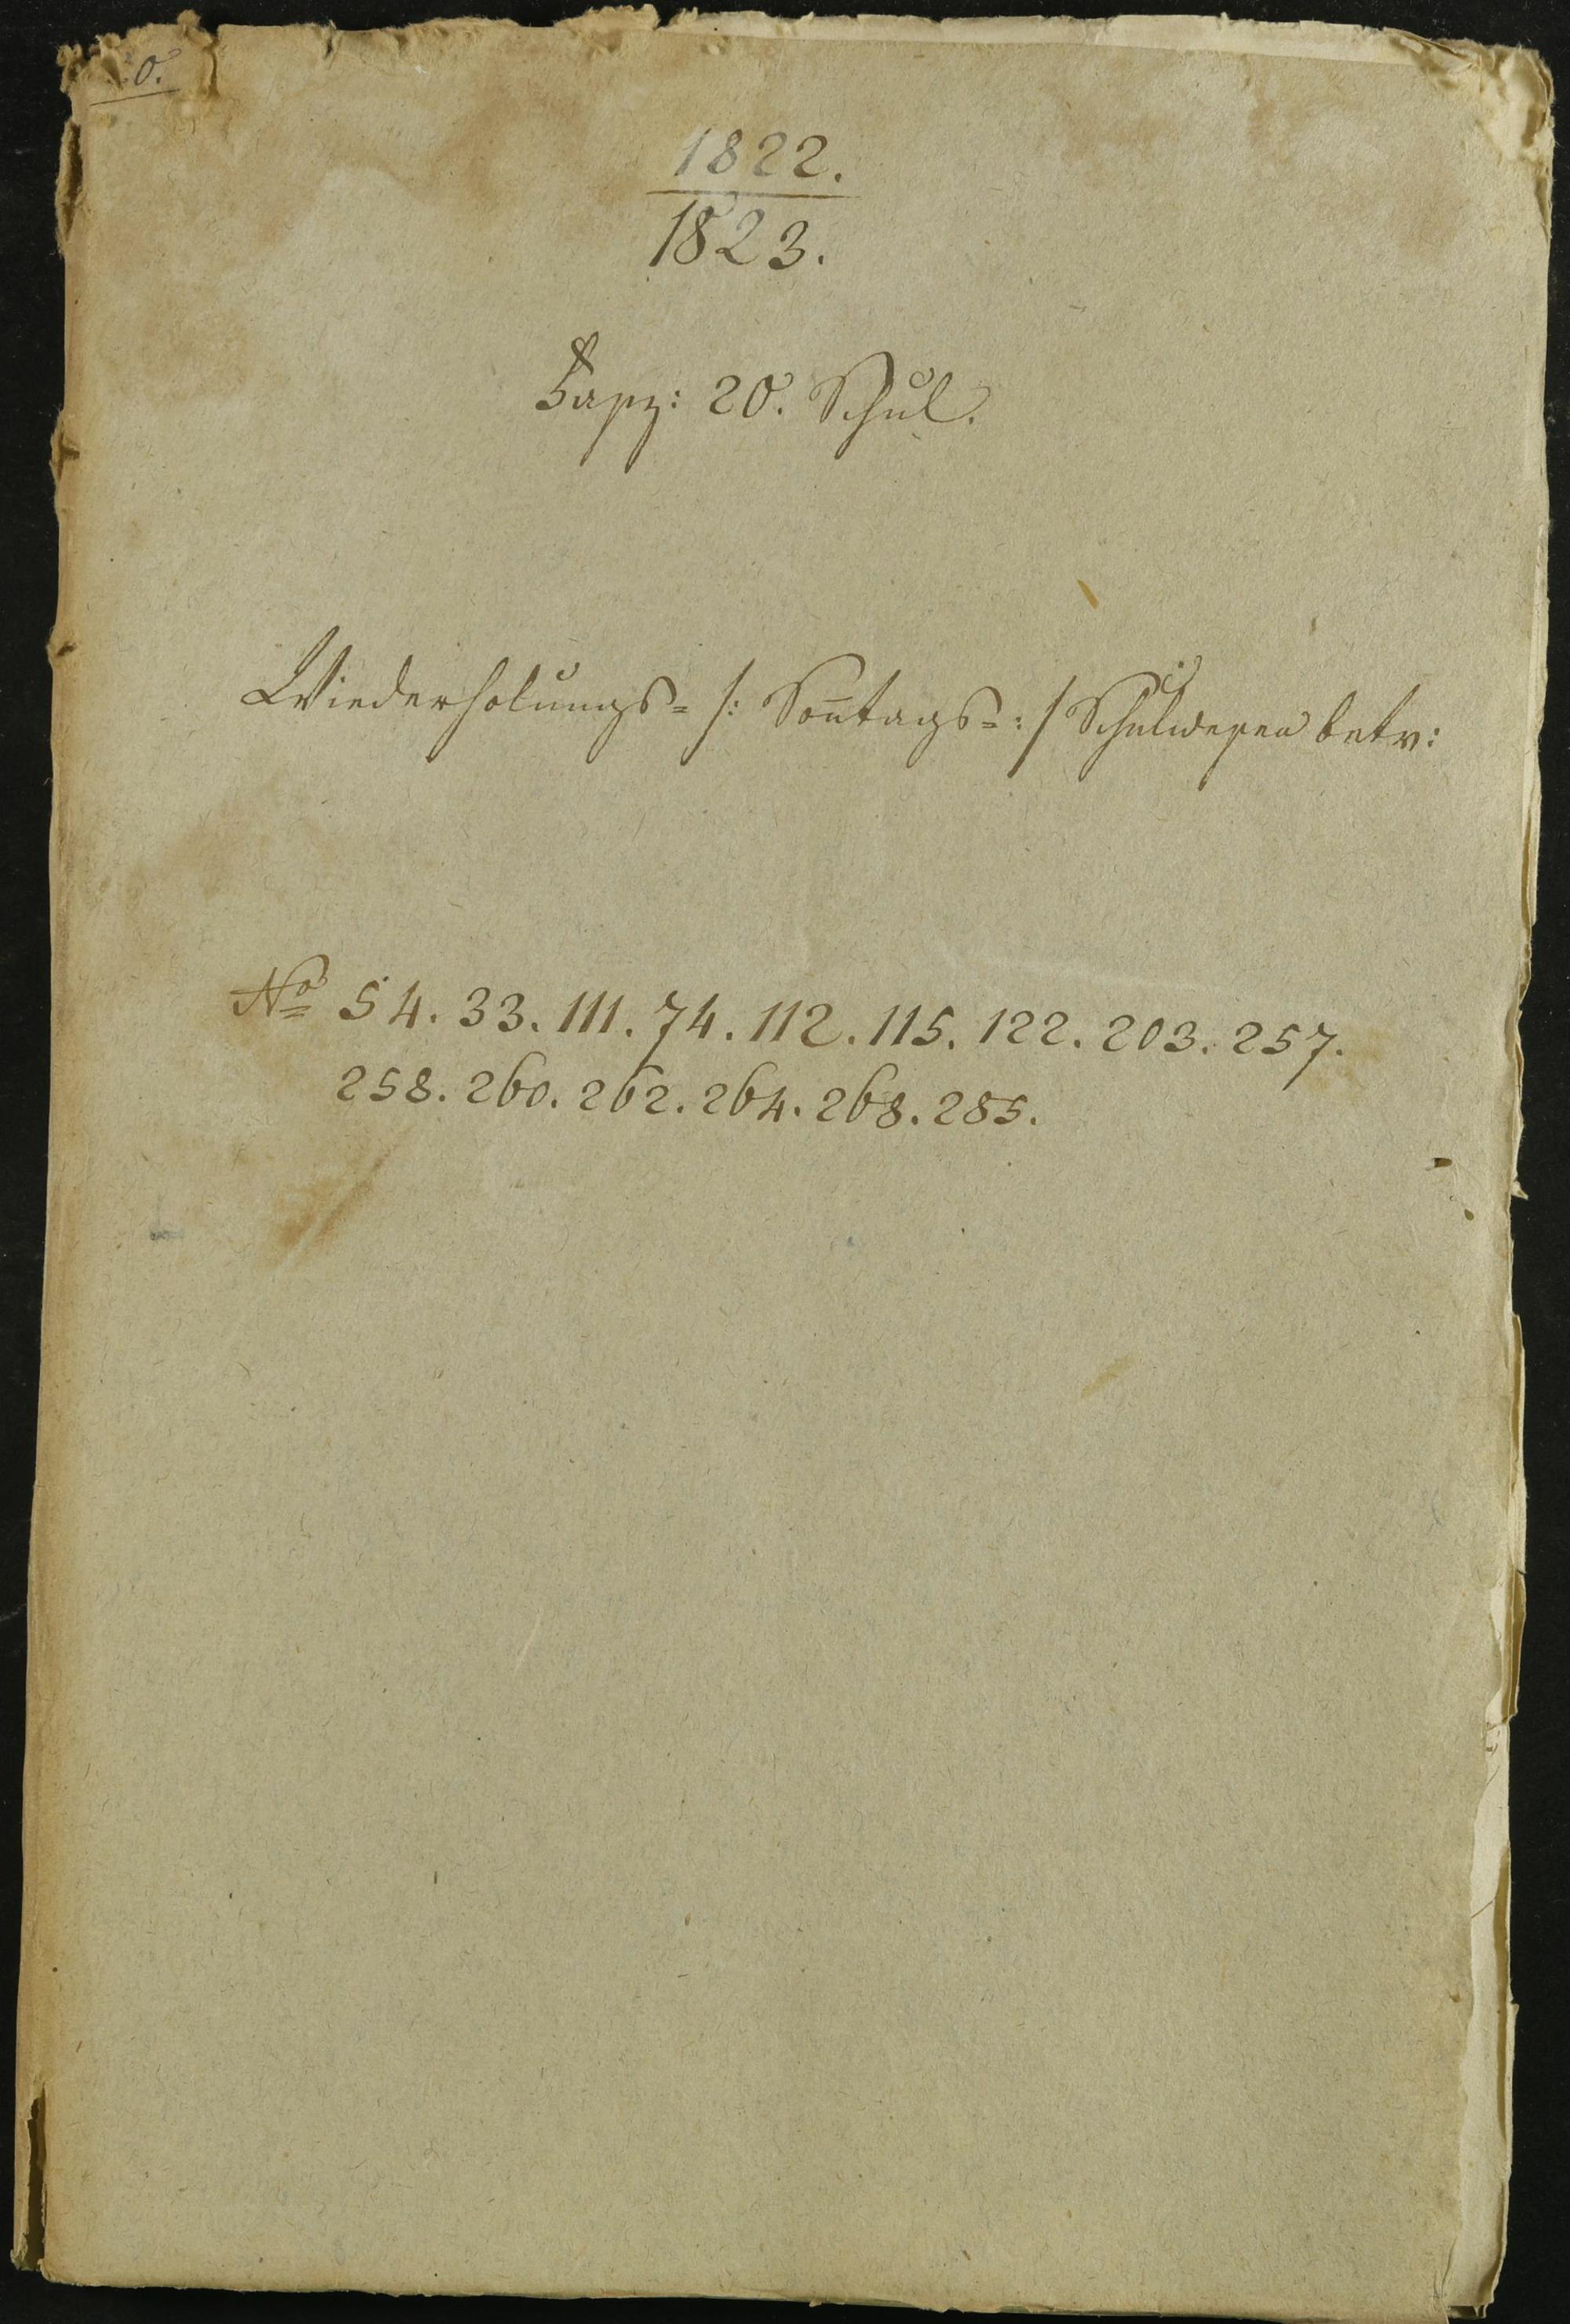 0.
1822.
1823.
Fasz: 20. Schul.
Wiederholungs= /: Son̄tags=:/ Schulwesen betr:
No 54. 33. 111. 74. 112. 115. 122. 203. 257.
258. 260. 262. 264. 268. 285.